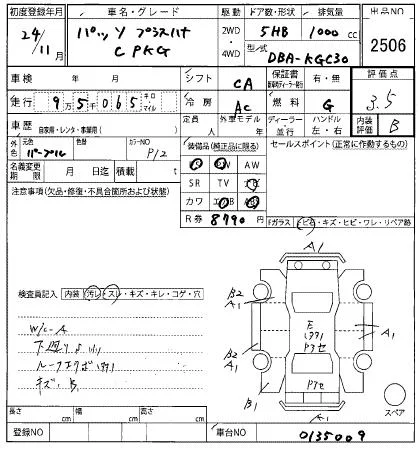 初度登録年月 車名・グレード 駆動 ドア数・形状 排気量 出品NO
24/11月 パッソ プラスハナ 2WD・4WD 5HB 1000cc 2506
C PKG 型/式 DBA-KGC30
車検 年 月 シフト CA 保証書 有・無 評価点
走行 9万5千065 キロ マイル 冷房 AC 燃料 G 3.5
車歴 自家用・レンタ・事業用( ) 定員 人 外車モデル 年 ディーラー 並行 ハンドル 左・右 内装評価 B
外色 元色 パープル 色替 カラーNO P12 装備品(純正品に限る) セールスポイント(正常に作動するもの)
名義変更期限 月 日迄 積載 t PS PW AW
注意事項(欠品・修復・不具合箇所および状態) SR TV ナビ
カワ エアB ABS
R券 8790円
Fガラス トビ石・キズ・ヒビ・ワレ・リペア跡
A1
検査員記入 内装 汚レ・スレ・キズ・キレ・コゲ・穴
B2 A1
W/C-A
E
A1
B2 A1
キズ・B
B1
A1
スペア
長さ cm 幅 cm 高さ cm
登録NO 車台NO 0135009